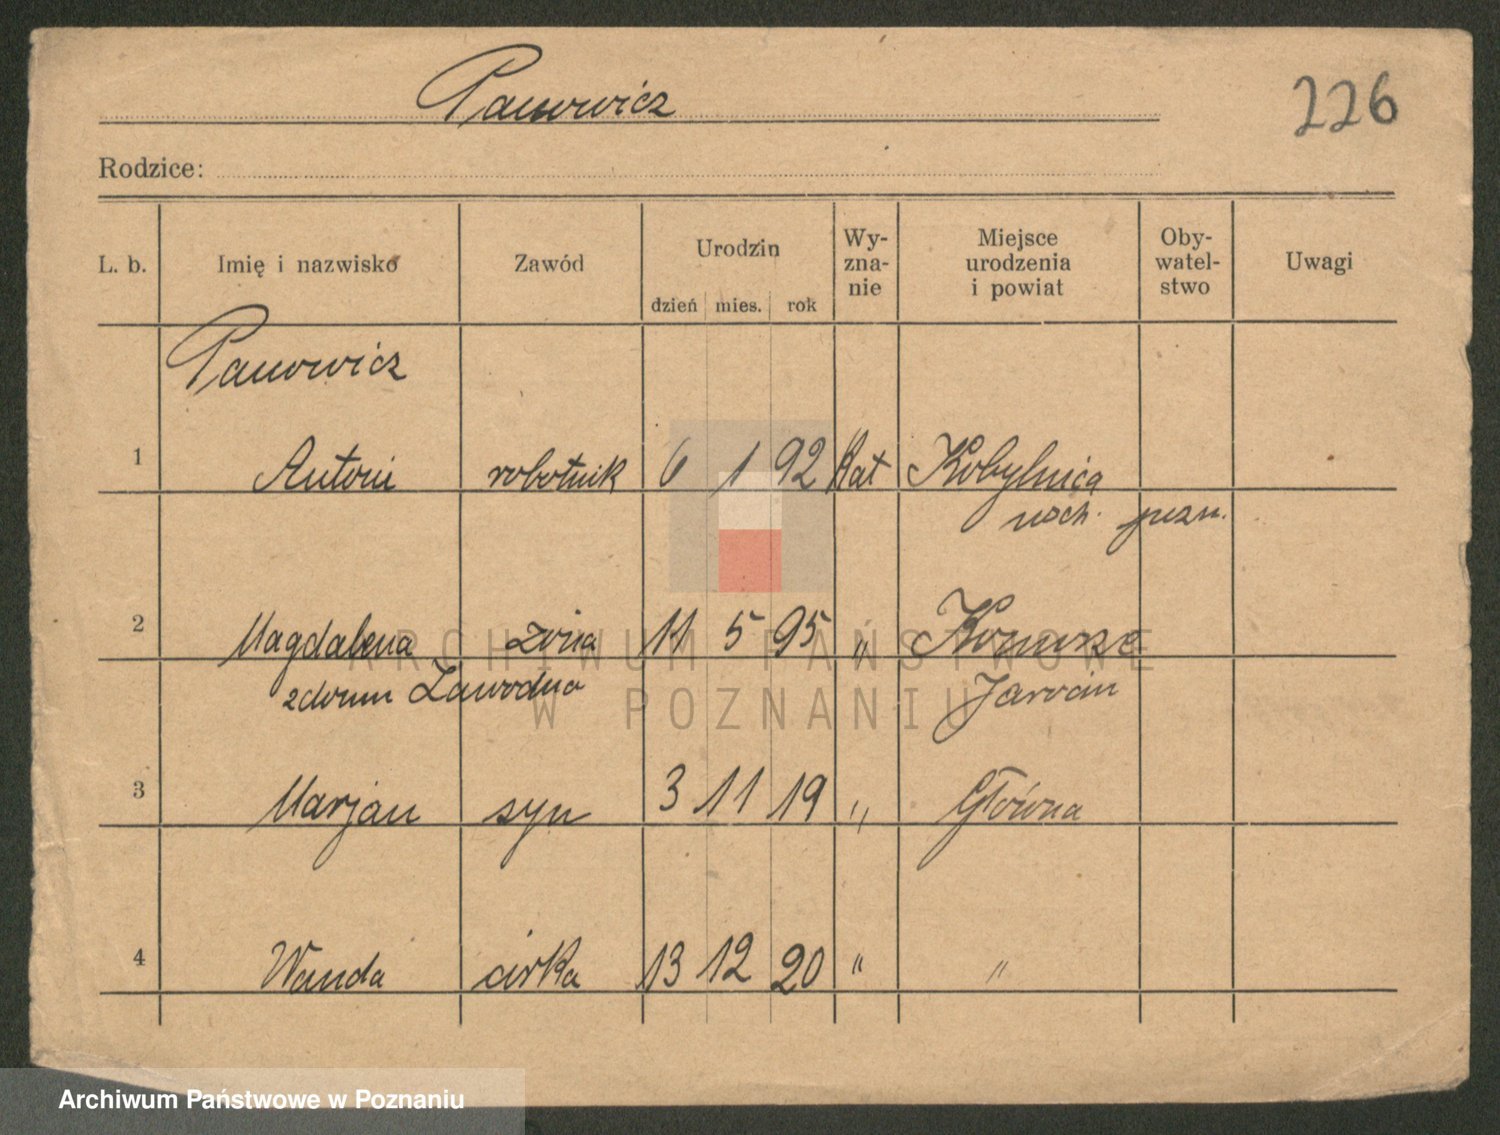 Panowicz
226
Rodzice:
L. b. Imię i nazwisko Zawód Urodzin dzień mies. rok Wy-zna-nie Miejsce urodzenia i powiat Oby-watel-stwo Uwagi
Panowicz
1 Antoni robotnik 6 1 92 Kat Kobylnica
wsch. pozn.
2 Magdalena żona 11 5 95 "
zdomu Zawodna Jarocin
3 Marjan syn 3 11 19 " Główna
4 Wanda córka 13 12 20 " "
ARCHIWUM PAŃSTWOWE
W POZNANIU
Archiwum Państwowe w Poznaniu